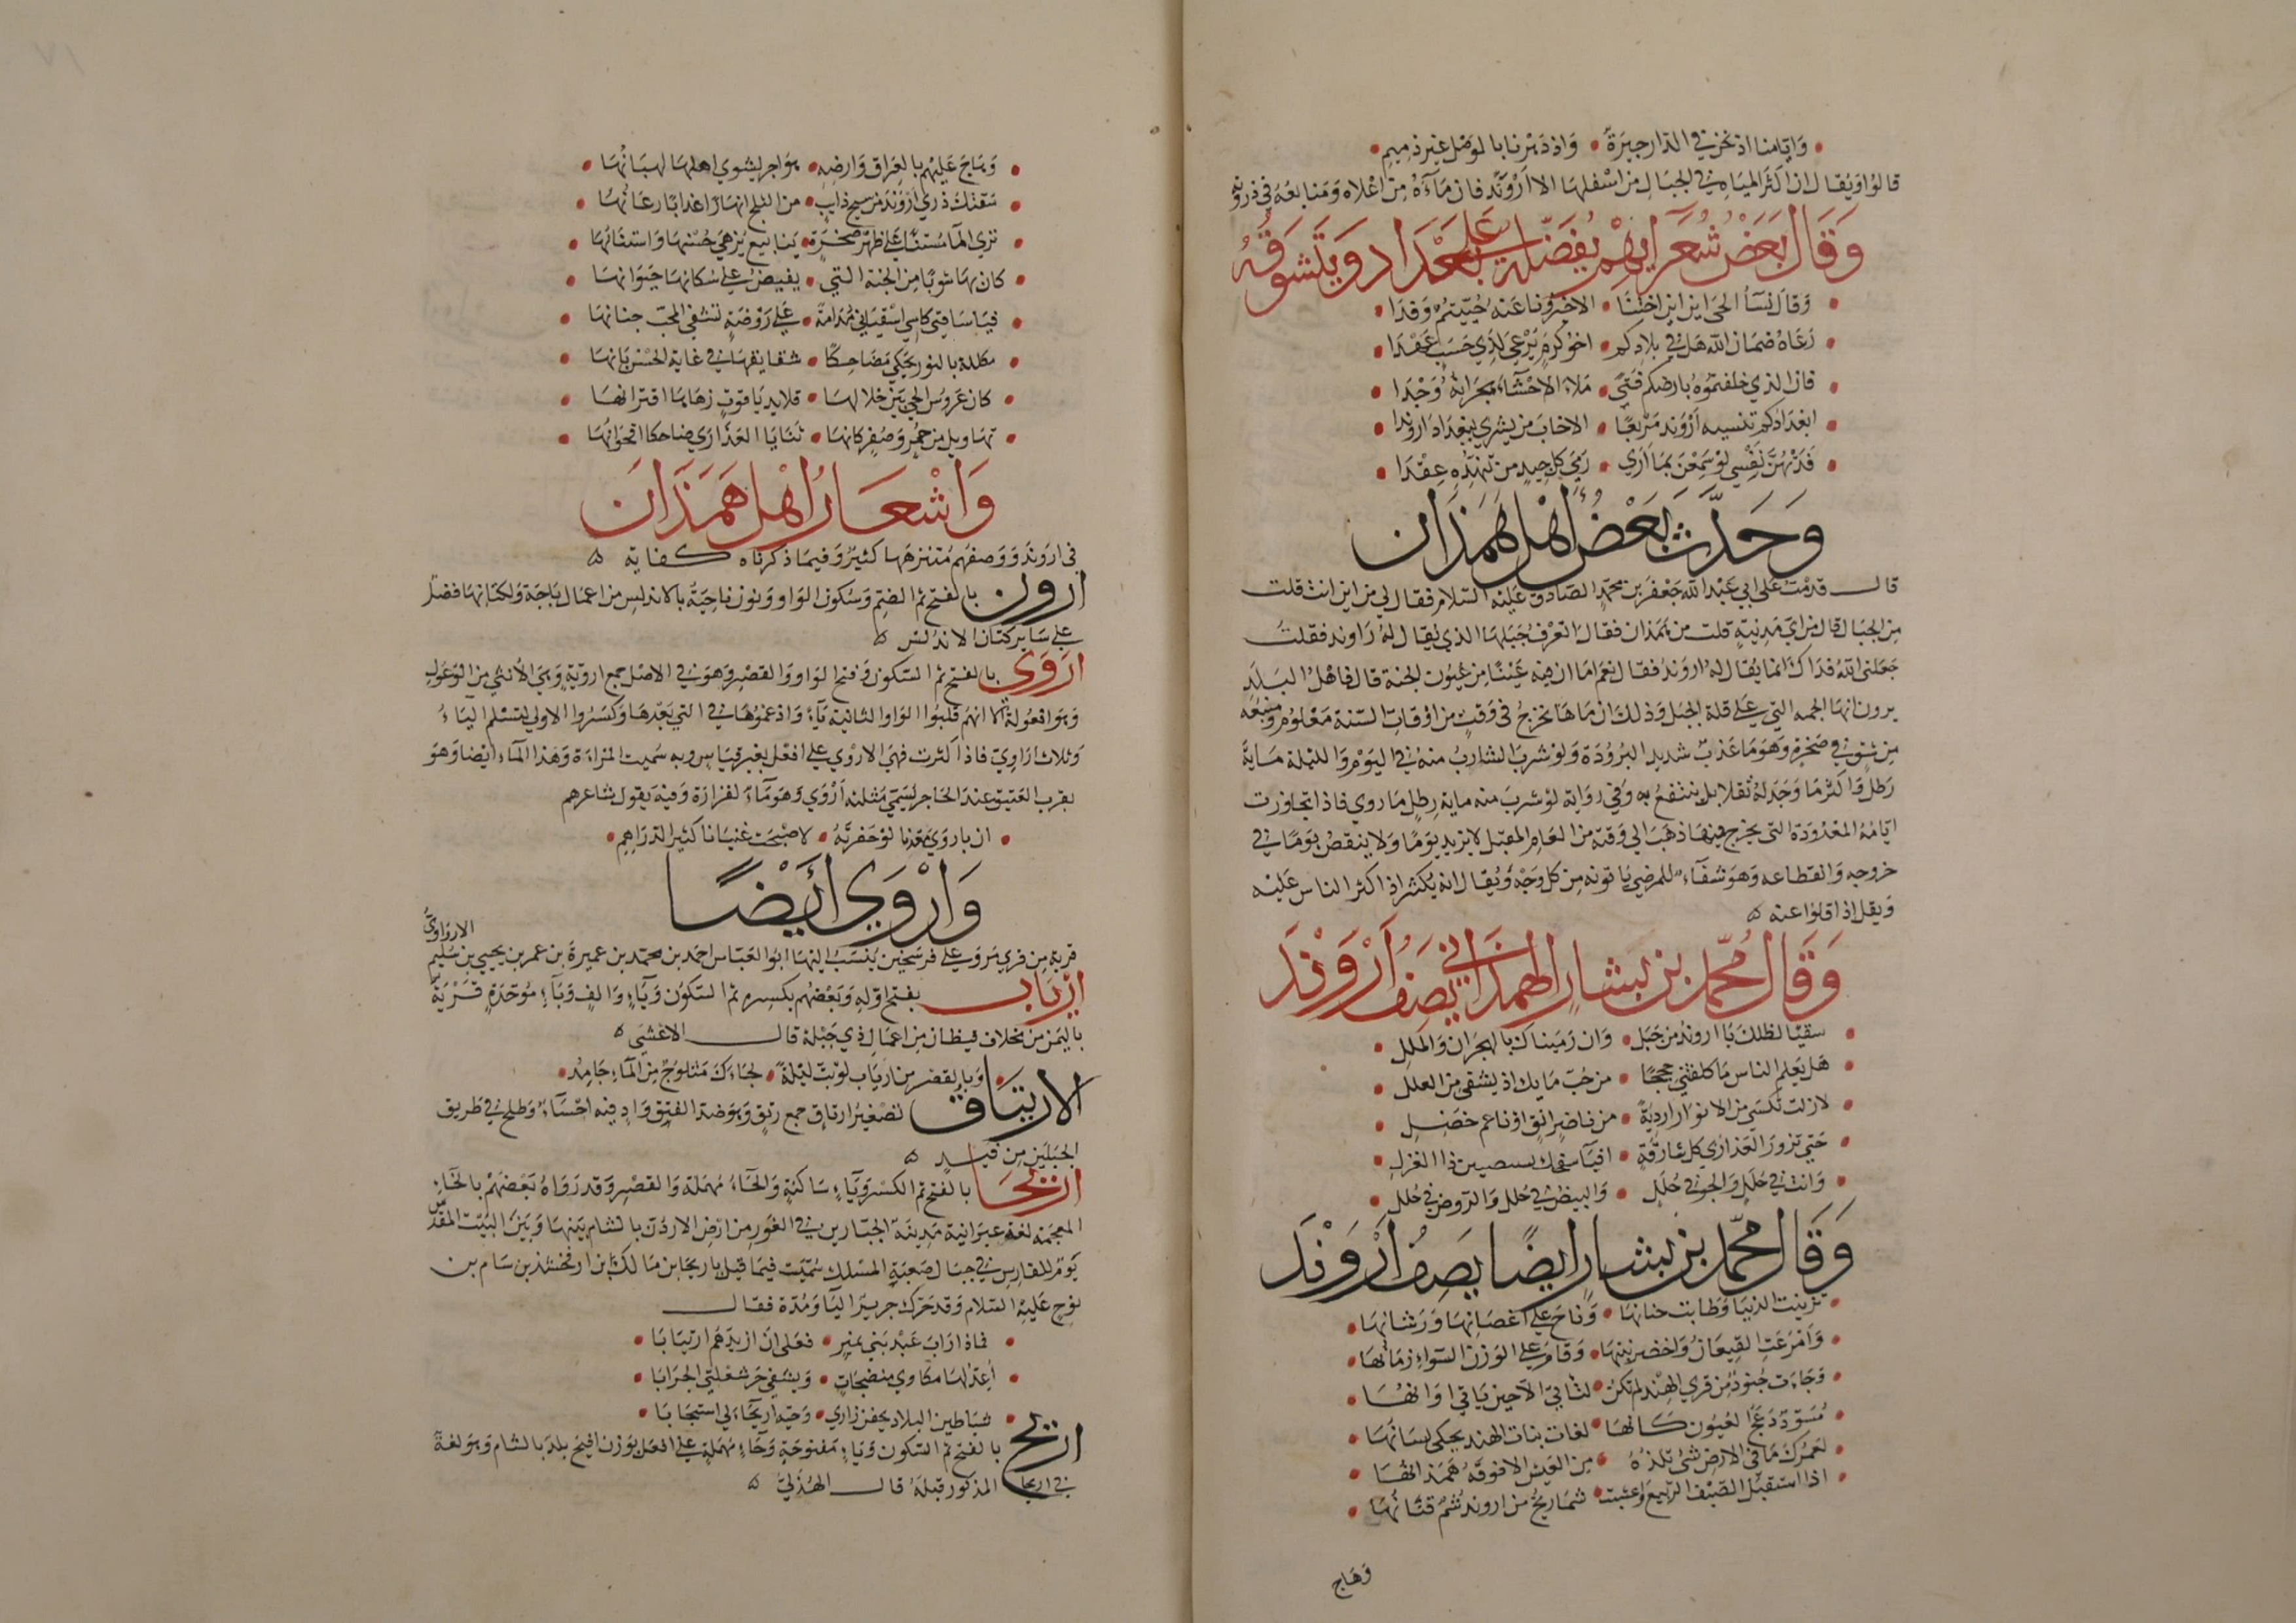 وَايّامنا اذ نحن في الدّار جيرَة • وَاذ دَهْرنا بالوَصْل غير ذميم
قالوُا وَيُقال ان اكثر الميَاه في الجبَال من اسْفلهَا الا اَرْوَنْد فان مَآءَهُ من اعْلاه وَمَنابعَهُ في ذروته
وَقَالَ بَعَضْ شُعَرَايهِمْ يُفضّله عَلى بَغْدَاد وَيَتَشوّقُه
وَقالت نسَآءُ الحَى اين ابن اختنَا • الا خبّرُونا عَنه حُيّيتمُ وَفدَا
رَعَاهُ ضمَان اللّه هَل في بلادكم • اخو كرمٍ يَرْعَى لذي حَسَب عَهْدَا
فان الذي خلفتموُهُ بارضكم فَتىً • مَلاءَ الاحْشَاء هجرَانهُ وَجْدَا
ابغدَادكم تنسيه اَرْوَند مَرْبعًا • الا خابَ من يشري ببغدَاد اروَندا
فدَتهُنَّ نَفْسي لوْ سَمِعْنَ بمَا ارَي • رَمَى كل جيدٍ من تنهّدِه عِقْدَا
وَحَدَّثَ بَعْضُ أهْلِ هَمَذَان
قال قدمْتُ عَلى ابي عَبْد اللّه جَعْفَر بن محمّد الصَادق عَليْه السَلام فقال لي من اين انت قلت
من الجبَال قال من ايّ مَدِينةٍ قلت من همَذان فقال اتعْرف جَبَلهَا الذي يُقال لهُ رَاوند فقلتُ
جَعَلني اللّه فدَاك انما يُقال لهُ اروَند فقال نعَم امَا ان فيه عَيْنًا من عُيُون الجنة قال فاهْل البَلد
يرون انهَا الجمه التي عَلى قلة الجبَل وَذلك ان مَاهَا يخرج في وَقتٍ من اوْقات السّنة مَعْلوُم وَمنبعُه
من شقٍ في صَخرةٍ وَهوَ مَا عَذبٌ شديد البرُودَة وَلوْ شربَ الشاربُ منهُ في اليوْم وَالليْلة مَاية
رَطلٍ وَاكثر مَا وَجَد لهُ ثقلا بل ينتفعُ به وَفي روَاية لوْ شربَ منه ماية رطلٍ مَا روي فاذا تجاوَزت
ايّامُهُ المعْدُودَة التى يخرج فيهَا ذهَبَ الى وَقته من العَام المقبل لا يزيد يوَمًا وَلا ينقصُ يوَمًا في
خروجه وَانقطاعه وَهوَ شفآءٌ للمرضي ياتونه من كل وَجْهٍ وَيُقال انه يكثر اذا كثر الناس عَليْه
وَيقل اذا قلوا عنه ۞
وَقَالَ مُحَمّد بن بَشار الهَمَذَاني يَصَفُ اَرْوَنْدَ
سقيًا لظلك يَا اروَندُ من جَبَل • وَان رَمَينَاك بالهجرَان وَالملل
هَل يَعلم الناس مَا كلفتني حججًا • من حُبّ مَايك اذ يشفى من العلل
لازلت تكسَي من الانوار ارديَةً • من ناضرٍ انقٍ اوْناعم خَضلِ
حَتى تزورَ العَذارَي كل شارقَةٍ • افيَآء سفحك يستصبين ذا الغزلِ
وَانت في حُلَل وَالجو في حُلل • وَالبيض في حُلل وَالرّوض في حُلل
وَقَالَ مُحَمّد بن بشار ايضًا يصَفُ اَرْوَنْدَ
تزينت الدنيا وَطابت جنانهَا • وَناحَ عَلى اغصَانهَا وَرَشانهَا
وَامْرَعَت القيعَانُ وَاخضر نبتهَا • وَقام عَلى الوَزن السَواء زمَانهَا
وَجَاءَت جُنودٌ من قري الهنْد لم تكن • لتاتي الاّ حين يَاتي اوَانهَا
مُسَوّدة دَعج العُيُون كانهَا • لغات بنات الهند يحكى لسَانهَا
لعَمرُك مَا في الارض شئ نلذّهُ • من العَيش الا فوقهُ همَذانهَا
اذا استقبَل الصَيْف الرّبيع وَاعشبت • شمَاريخ من اروَند شمّ قنانهَا
وَهَاج
وَهَاجَ عَليْهم بالعراق وَارضه • هوَاجر يشوي اهلهَا لهبَانُهَا
سَقتك ذري اَرْوَند من سيح ذايب • من الثلج انهَارًا عذابًا رعَانُهَا
تري المآ مُستنّا عَلى ظهر صخرَةٍ • ينابيع يُزهي حُسْنهَا وَاستنَانهَا
كان بهَا شوبًا من الجنة التي • يفيض عَلى سُكانهَا حَيَوَانهَا
فيا سَاقيي كاسي اسْقيَاني مُدَامَةً • عَلى رَوْضةٍ تشفي المحبّ جنانهَا
مكللة بالنور تحكي مَضَاحكًا • شقايقهَا في غاية الحُسْن بَانهَا
كان عَروُس الحي بَين خلالهَا • قلايد يَاقوتٍ زهَاهَا اقترانهَا
تهَاويل من حُمُرٍ وَصُفرٍ كانهَا • ثنايَا العَذارَي ضاحكا اقحوَانُهَا
وَاشْعَارُ اهْل هَمَذَانَ
في اروَندَ وَوَصفهم مُتنزهَهَا كثيرٌ وَفيمَا ذكرناه كفاية ۞
ارون بالفتح ثم الضّم وَسُكون الوَاو وَنون ناحيَةٌ بالاندلس من اعمال بَاجَة وَلكتانهَا فضل
عَلى سَاير كتان الاندلس ۞
اَرْوَى بالفتح ثم السّكون وَفتح الوَاو وَالقصْر وَهوَ في الاصْل جمع ارويّةٍ وَهيَ الانثي من الوُعوُل
وَهوَ افعُولة الا انهُم قلبوُا الوَاو الثانية يَآءً وَادغموُهَا في التي بَعْدهَا وَكسَرُوا الاولى لتسْلم اليَآءُ
وَثلاث ارَاويّ فاذا كثرت فهيَ الاروْي عَلى افعَل بغير قيَاس وبه سُميت المرْاءَة وَهَذا المآء ايضًا وَهوَ
بقرب العَقيق عند الحَاجر يُسَمّى مثلثه اَرْوَى وَهوَ مَآءٌ لفزارَة وَفيه يَقول شاعرهم
ان باروَي مَعْدنا لوْ حَفرتَهُ • لاصْبَحت غنيَانا كثيرَ الدرَاهِم
وَارْوَي اَيَضًا
قريةٌ من قري مَروَ عَلى فرسَخين يُنسَبُ اليْهَا ابُو العَبّاس احمَد بن محمّد بن عميرَة بن عمر بن يحيي بن سُليم
الاروَاويّ
اَرْيَاب بفتح اوّله وَبَعْضهُم بكسره ثم السّكون وَيَآءٍ وَالفٍ وَبَآءٍ مُوَحّدَةٍ قَرْيَة
باليمَن من مخلاف قيظان من اعمَال ذي جَبْلة قال الاعْشَى ۞
وَبالقصْر من ارْيَاب لوْ بتّ ليْلةً • لجَاءَكَ مَثلوُجٌ من المآءِ جَامِدُ
الارَيتَاق تصْغيرُ ارتاق جمع رتقٍ وَهوَ ضد الفتق وَادٍ فيه احْسَآءٌ وَطلح في طَريق
الجبَلَين من فَيْد ۞
اَرِيحَا بالفتح ثم الكسْر وَيَآءٍ سَاكنةٍ وَالحآءُ مُهمَلة وَالقصْر وَقد رَوَاهُ بَعْضهُم بالخآء
المعجَمَة لغة عبرَانية مَدِينَة الجبّارين في الغَور من ارض الاردُن بالشام بَينهَا وَبَينَ البَيْت المقدّس
يَوْمٌ للفارس في جبَال صَعبَة المسْلك سُمّيت فيمَا قيل باريحَا بن مَالك بن ارفخشذ بن سَام بن
نوحٍ عَليْه السَلام وَقد حَرّك جرير اليَا وَمُدّة فقال
فماذا رَابَ عَبْد بني نميرٍ • فعَلى ان ازيدَهُم ارتيَابَا
اُعِدّ لهَا مكاوي منضجَاتٍ • وَيشفي حَرّ شعلتي الجرَابَا
شيَاطين البلاد يخفن زاري • وَحيّه اريحَآء لي استجَابَا
اَرْيَح بالفتح ثم السّكون وَيَاءٍ مَفتوحَةٍ وَحَاءٍ مُهمَلةٍ عَلى افعَل بوَزن افيح بلد بالشام وَهوَ لغة
في اريحَا المذكور قبلَهُ قال الهُذَليّ ۞